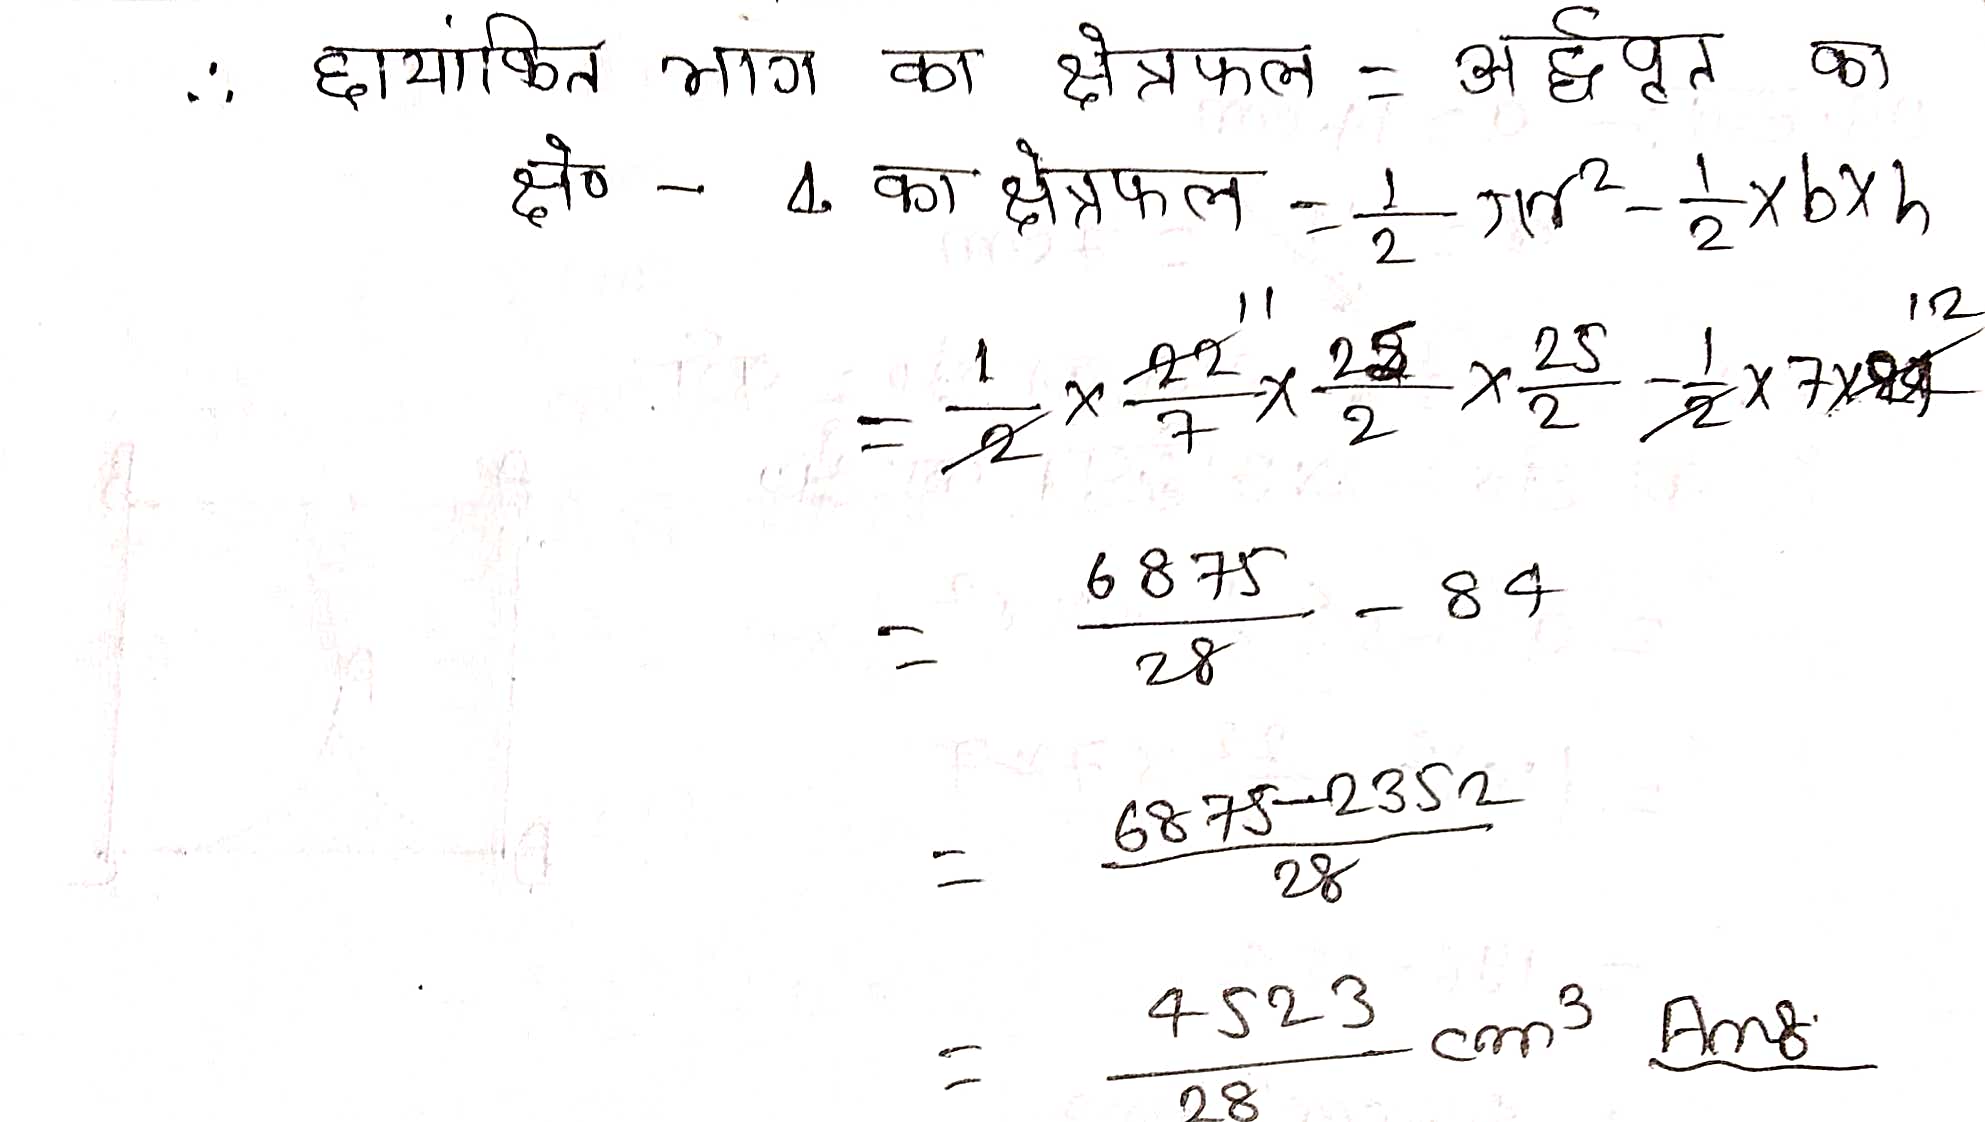 ∴ छायांकित भाग का क्षेत्रफल = अर्द्धवृत का
क्षे० - Δ का क्षेत्रफल = 1/2 πr² - 1/2 × b × h
= 1/2 × 22/7 × 25/2 × 25/2 - 1/2 × 7 × 24 11 12
= 6875/28 - 84
= 6875-2352/28
= 4523/28 cm³ Ans.